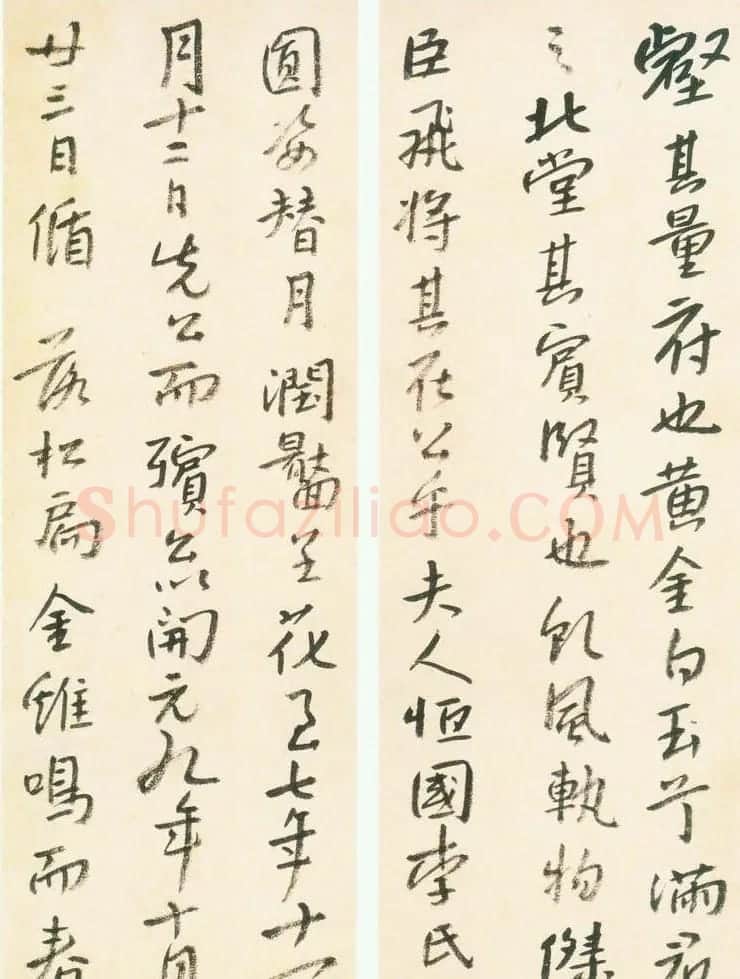 壑其量府也黄金白玉芥满
之北堂其賓賢也飢風執物傑
臣飛將其在公乎夫人恒國李氏
圓姿替月潤臉呈花以七年十一
月十二日先公而殯以開元九年十月
廿三日循 落松扃金雞鳴而春
Shufaziliao.COM